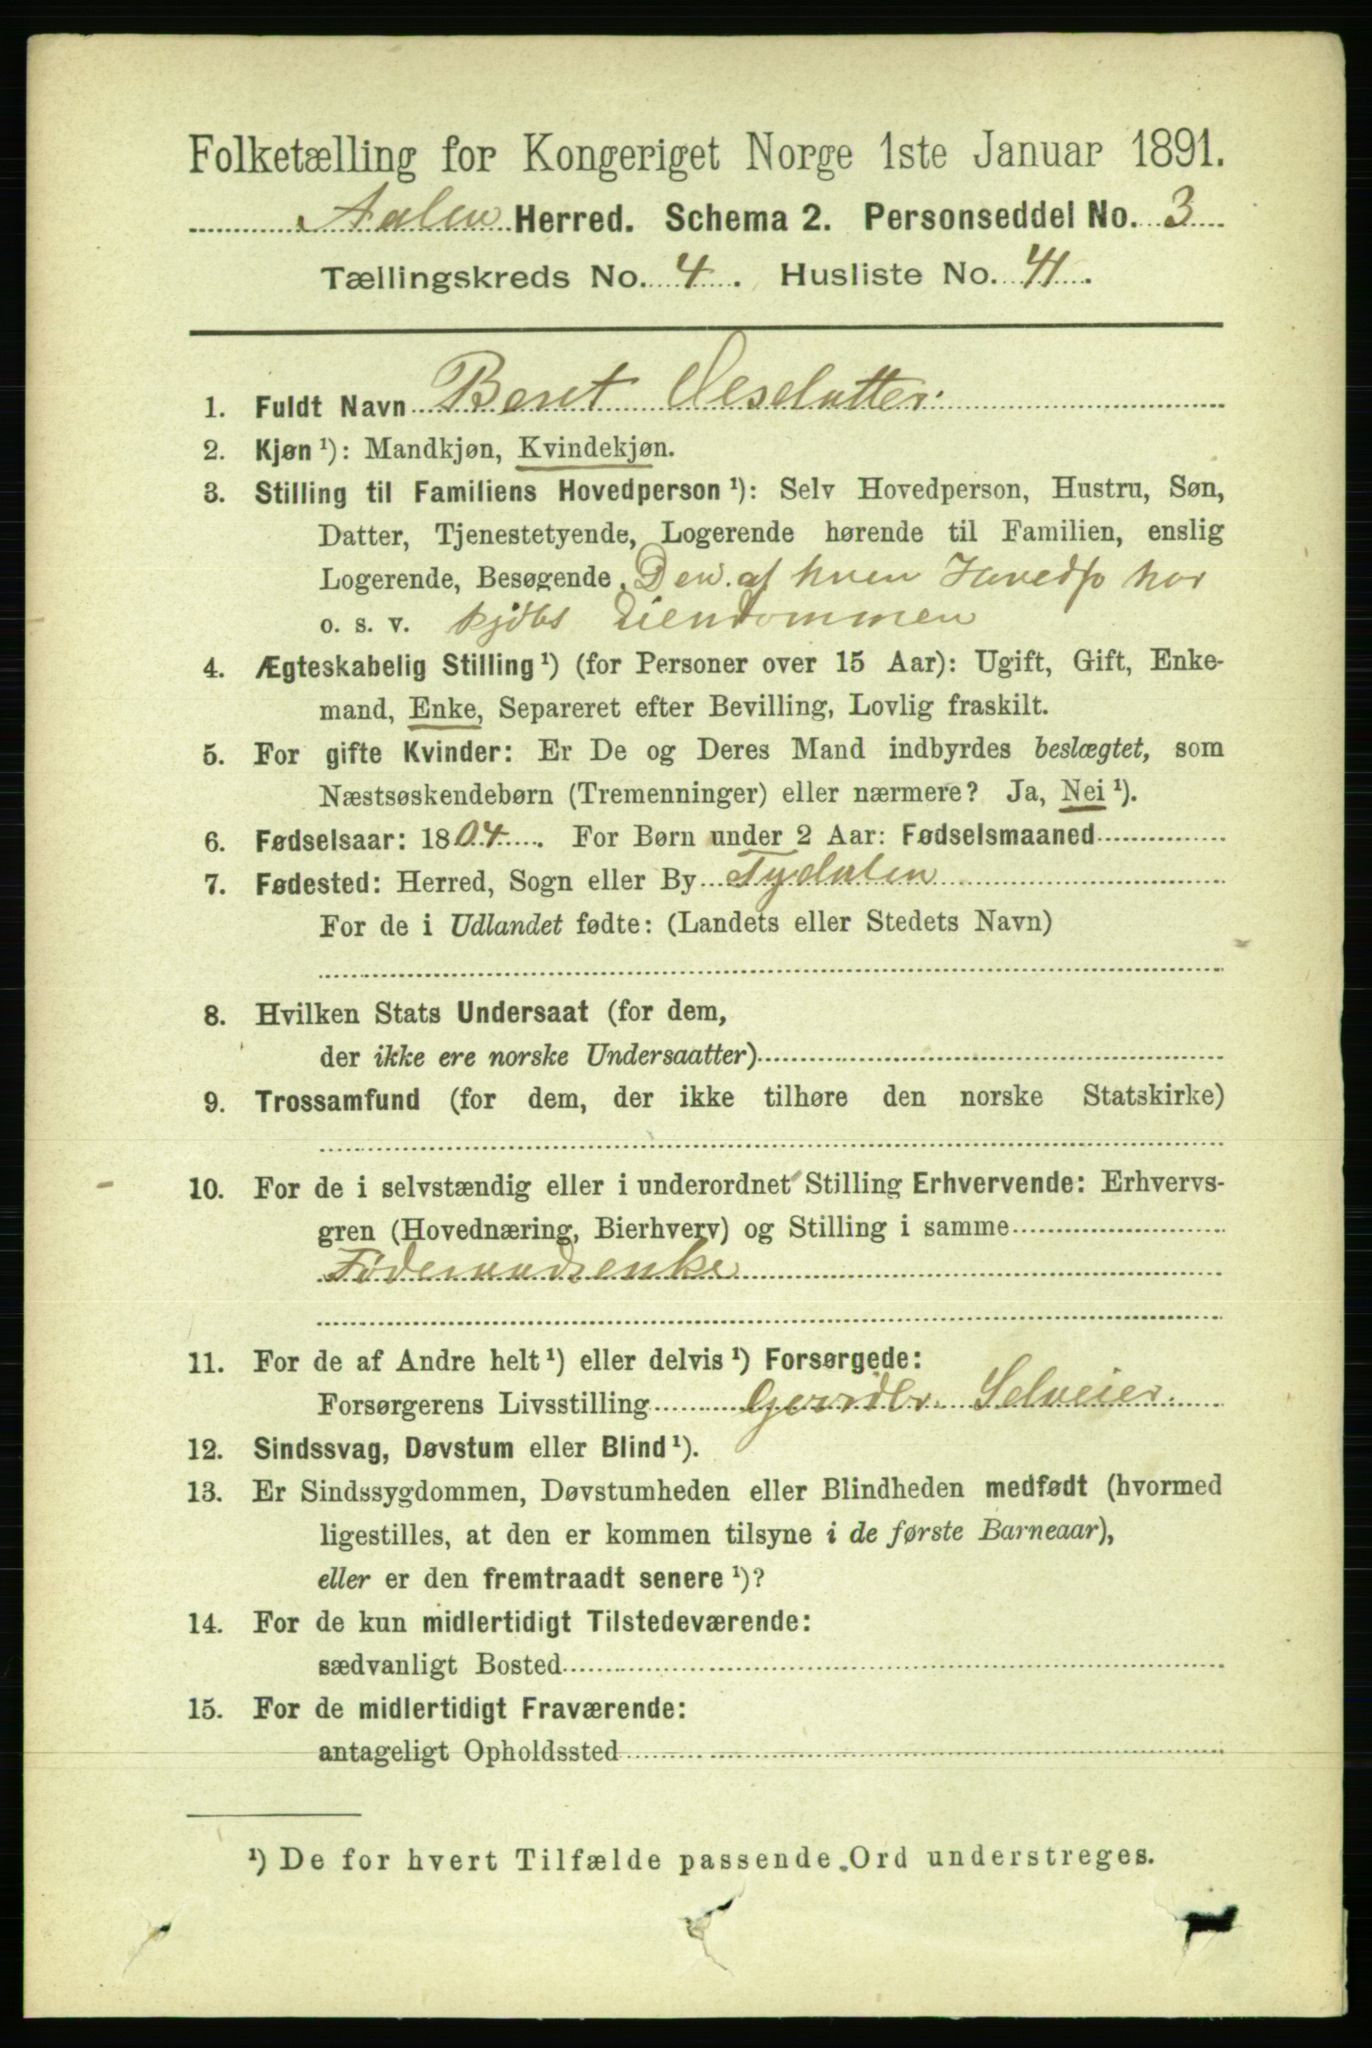 Folketælling for Kongeriget Norge 1ste Januar 1891.
Aalen Herred. Schema 2. Personseddel No. 3
Tællingskreds No. 4. Husliste No. 41.
1. Fuldt Navn Beret Olesdatter.
2. Kjøn ¹): Mandkjøn, Kvindekjøn.
3. Stilling til Familiens Hovedperson ¹): Selv Hovedperson, Hustru, Søn,
Datter, Tjenestetyende, Logerende hørende til Familien, enslig
Logerende, Besøgende. Den af hvem Hovedp har
o. s. v. kjøbt Eiendommen
4. Ægteskabelig Stilling ¹) (for Personer over 15 Aar): Ugift, Gift, Enke-
mand, Enke, Separeret efter Bevilling, Lovlig fraskilt.
5. For gifte Kvinder: Er De og Deres Mand indbyrdes beslægtet, som
Næstsøskendebørn (Tremenninger) eller nærmere? Ja, Nei ¹).
6. Fødselsaar: 1804. For Børn under 2 Aar: Fødselsmaaned
7. Fødested: Herred, Sogn eller By Tydalen
For de i Udlandet fødte: (Landets eller Stedets Navn)
8. Hvilken Stats Undersaat (for dem,
der ikke ere norske Undersaatter)
9. Trossamfund (for dem, der ikke tilhøre den norske Statskirke)
10. For de i selvstændig eller i underordnet Stilling Erhvervende: Erhvervs-
gren (Hovednæring, Bierhverv) og Stilling i samme
Føderaadsenke
11. For de af Andre helt ¹) eller delvis ¹) Forsørgede:
Forsørgerens Livsstilling Gaardbr. Selveier.
12. Sindssvag, Døvstum eller Blind ¹).
13. Er Sindssygdommen, Døvstumheden eller Blindheden medfødt (hvormed
ligestilles, at den er kommen tilsyne i de første Barneaar),
eller er den fremtraadt senere ¹)?
14. For de kun midlertidigt Tilstedeværende:
sædvanligt Bosted
15. For de midlertidigt Fraværende:
antageligt Opholdssted
¹) De for hvert Tilfælde passende Ord understreges.